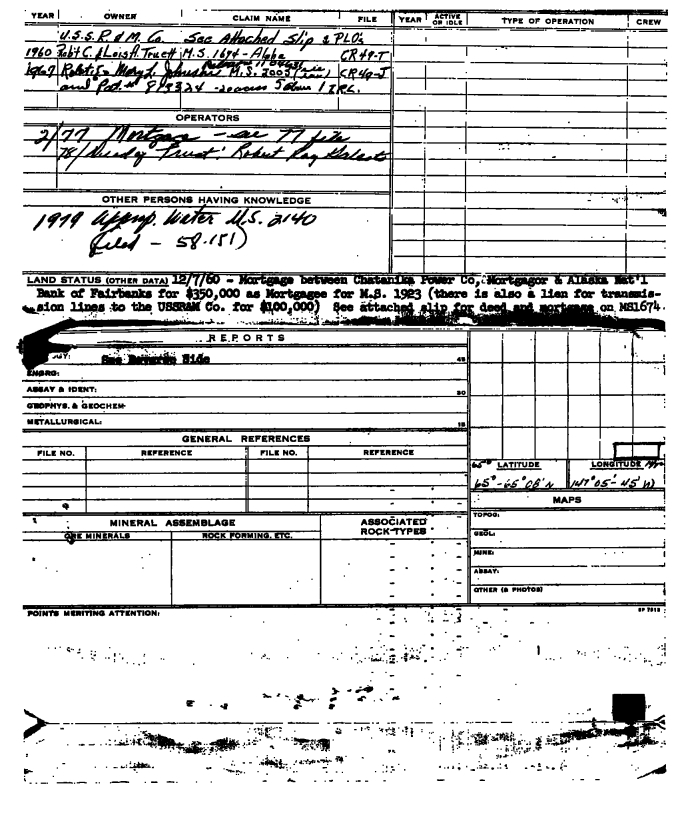 YEAR OWNER CLAIM NAME FILE YEAR ACTIVE OR IDLE TYPE OF OPERATION CREW
U.S.S.R. & M. Co. See Attached Slip & PLO's
1960 Rob't C. & Lois A. Truett M.S. 1674 - Alpha CR49-T
1967 M.S. 2003 CR49-J
and Pat. # 813324
OPERATORS
2/77 Mortgage - see 77 file
78/ Deed of Trust: Robert Ray
OTHER PERSONS HAVING KNOWLEDGE
1979 Approp. Water M.S. 2140
(filed - 58.151)
LAND STATUS (OTHER DATA) 12/7/60 - Mortgage between Chatanika Power Co, Mortgagor & Alaska Nat'l
Bank of Fairbanks for $350,000 as Mortgagee for M.S. 1923 (there is also a lien for transmis-
sion lines to the USSRAM Co. for $100,000) See attached slip for deed and mortgage on MS1674.
REPORTS
See Reverse Side 45
ENGRG:
ASSAY & IDENT: 30
GEOPHYS. & GEOCHEM-
METALLURGICAL: 15
GENERAL REFERENCES
FILE NO. REFERENCE FILE NO. REFERENCE
LATITUDE LONGITUDE
65°-65°08' N 147°05'-45' W
MAPS
TOPOG:
MINERAL ASSEMBLAGE ASSOCIATED ROCK TYPES
ORE MINERALS ROCK FORMING, ETC.
GEOL:
MINE:
ASSAY:
OTHER (& PHOTOS)
POINTS MERITING ATTENTION: